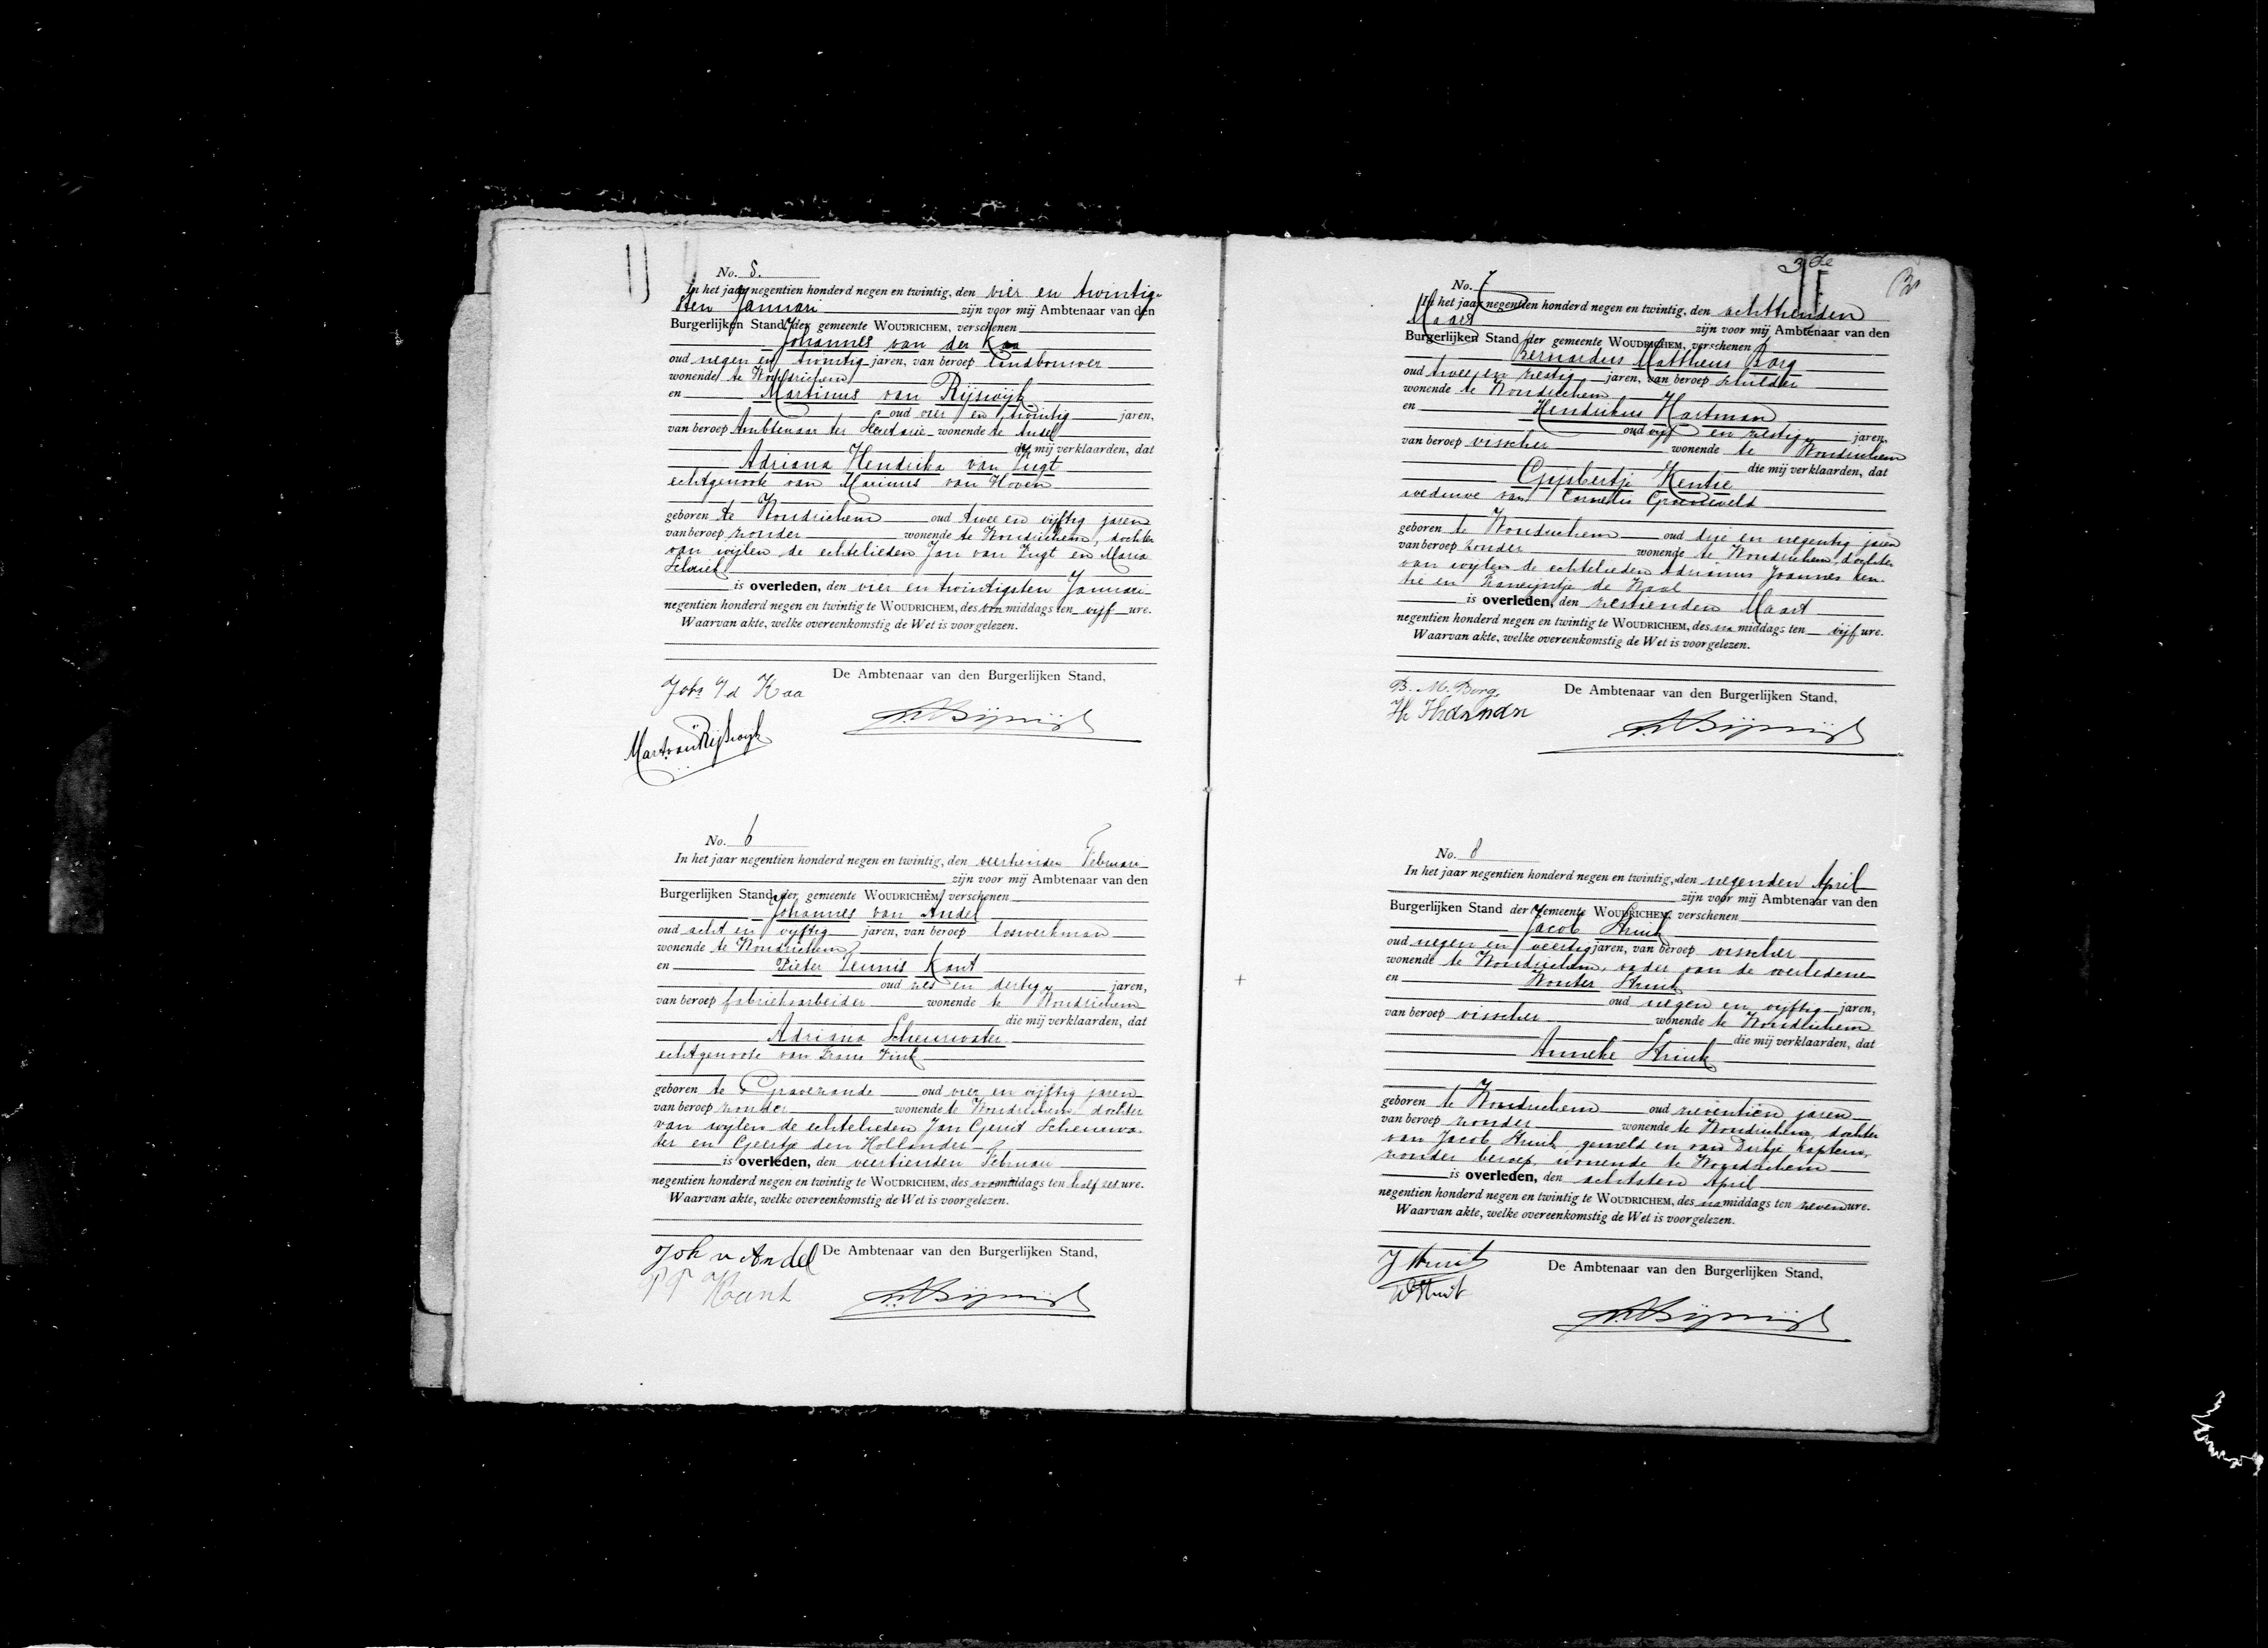 No. 5.
In het jaar negentien honderd negen en twintig, den vier en twintig-
sten Januari zijn voor mij Ambtenaar van den
Burgerlijken Stand der gemeente WOUDRICHEM, verschenen
Johannes van der Kaa
oud negen en twintig jaren, van beroep landbouwer
wonende te Woudrichem
en Martinus van Rijswijk
oud vier en twintig jaren,
van beroep Ambtenaar ter Secretarie wonende te Andel
die mij verklaarden, dat
Adriana Hendrika van Vugt
echtgenoote van Marinus van Hoven
geboren te Woudrichem oud twee en vijftig jaren
van beroep zonder wonende te Woudrichem, dochter
van wijlen de echtelieden Jan van Vugt en Maria
is overleden, den vier en twintigsten Januari
negentien honderd negen en twintig te WOUDRICHEM, des voormiddags ten vijf ure.
Waarvan akte, welke overeenkomstig de Wet is voorgelezen.
De Ambtenaar van den Burgerlijken Stand,
Johs v/d Kaa
Mart. van Rijswijk
No. 6
In het jaar negentien honderd negen en twintig, den veertienden Februari
zijn voor mij Ambtenaar van den
Burgerlijken Stand der gemeente WOUDRICHEM, verschenen
Johannes van Andel
oud acht en vijftig jaren, van beroep loswerkman
wonende te Woudrichem
en Pieter Teunis Kant
oud zes en dertig jaren,
van beroep fabrieksarbeider wonende te Woudrichem
die mij verklaarden, dat
Adriana Scheurwater
echtgenoote van Frans Vink
geboren te Gravezande oud vier en vijftig jaren
van beroep zonder wonende te Woudrichem dochter
van wijlen de echtelieden Jan Gerrit Scheurwa-
ter en Geertje den Hollander
is overleden, den veertienden Februari
negentien honderd negen en twintig te WOUDRICHEM, des voormiddags ten half zes ure.
Waarvan akte, welke overeenkomstig de Wet is voorgelezen.
De Ambtenaar van den Burgerlijken Stand,
Joh v Andel
P T Kant
3de
No. 7
In het jaar negentien honderd negen en twintig, den achttienden
Maart zijn voor mij Ambtenaar van den
Burgerlijken Stand der gemeente WOUDRICHEM, verschenen
Bernardus Mattheus Borg
oud twee en zestig jaren, van beroep schilder
wonende te Woudrichem
en Hendrikus Hartman
oud vijf en zestig jaren,
van beroep visscher wonende te Woudrichem
die mij verklaarden, dat
Gijsbertje Kentie
weduwe van Cornelis Groeneveld
geboren te Woudrichem oud drie en negentig jaren
van beroep zonder wonende te Woudrichem, dochter
van wijlen de echtelieden Adrianus Joannes Ken-
tie en de Waal
is overleden, den zestienden Maart
negentien honderd negen en twintig te WOUDRICHEM, des namiddags ten vijf ure.
Waarvan akte, welke overeenkomstig de Wet is voorgelezen.
De Ambtenaar van den Burgerlijken Stand,
B. M. Borg
No. 8
In het jaar negentien honderd negen en twintig, den negenden April
zijn voor mij Ambtenaar van den
Burgerlijken Stand der gemeente WOUDRICHEM, verschenen
Jacob Struik
oud negen en veertig jaren, van beroep visscher
wonende te Woudrichem, vader van de overledene
en Wouter Struik
oud negen en vijftig jaren,
van beroep visscher wonende te Woudrichem
die mij verklaarden, dat
Anneke Struik
geboren te Woudrichem oud zeventien jaren
van beroep zonder wonende te Woudrichem, dochter
van Jacob Struik gemeld en van Dirkje Kaptein,
zonder beroep, wonende te Woudrichem
is overleden, den achtsten April
negentien honderd negen en twintig te WOUDRICHEM, des namiddags ten zeven ure.
Waarvan akte, welke overeenkomstig de Wet is voorgelezen.
De Ambtenaar van den Burgerlijken Stand,
J Struik
W Struik